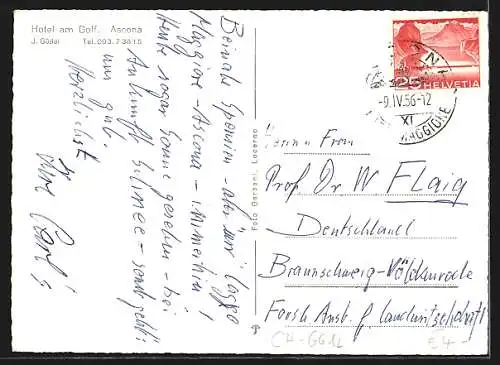 Hotel am Golf. Ascona
J. Gödel Tel. 093. 73615
Beinahe Spanien - aber "nur" Lago
Maggiore - Ascona - immerhin!
Heute sogar Sonne gesehen - bei
Ankunft Schnee - sonst geht's
uns gut.
Herzlichst
Ihre
Foto Garbani, Locarno
ASCONA
-9.IV.56-12
XI
MAGGIORE
25
HELVETIA
Herrn u Frau
Prof. Dr W Flaig
Deutschland
Braunschweig - Völkenrode
Forsch. Anst. f Landwirtschaft
CH-6612
54-